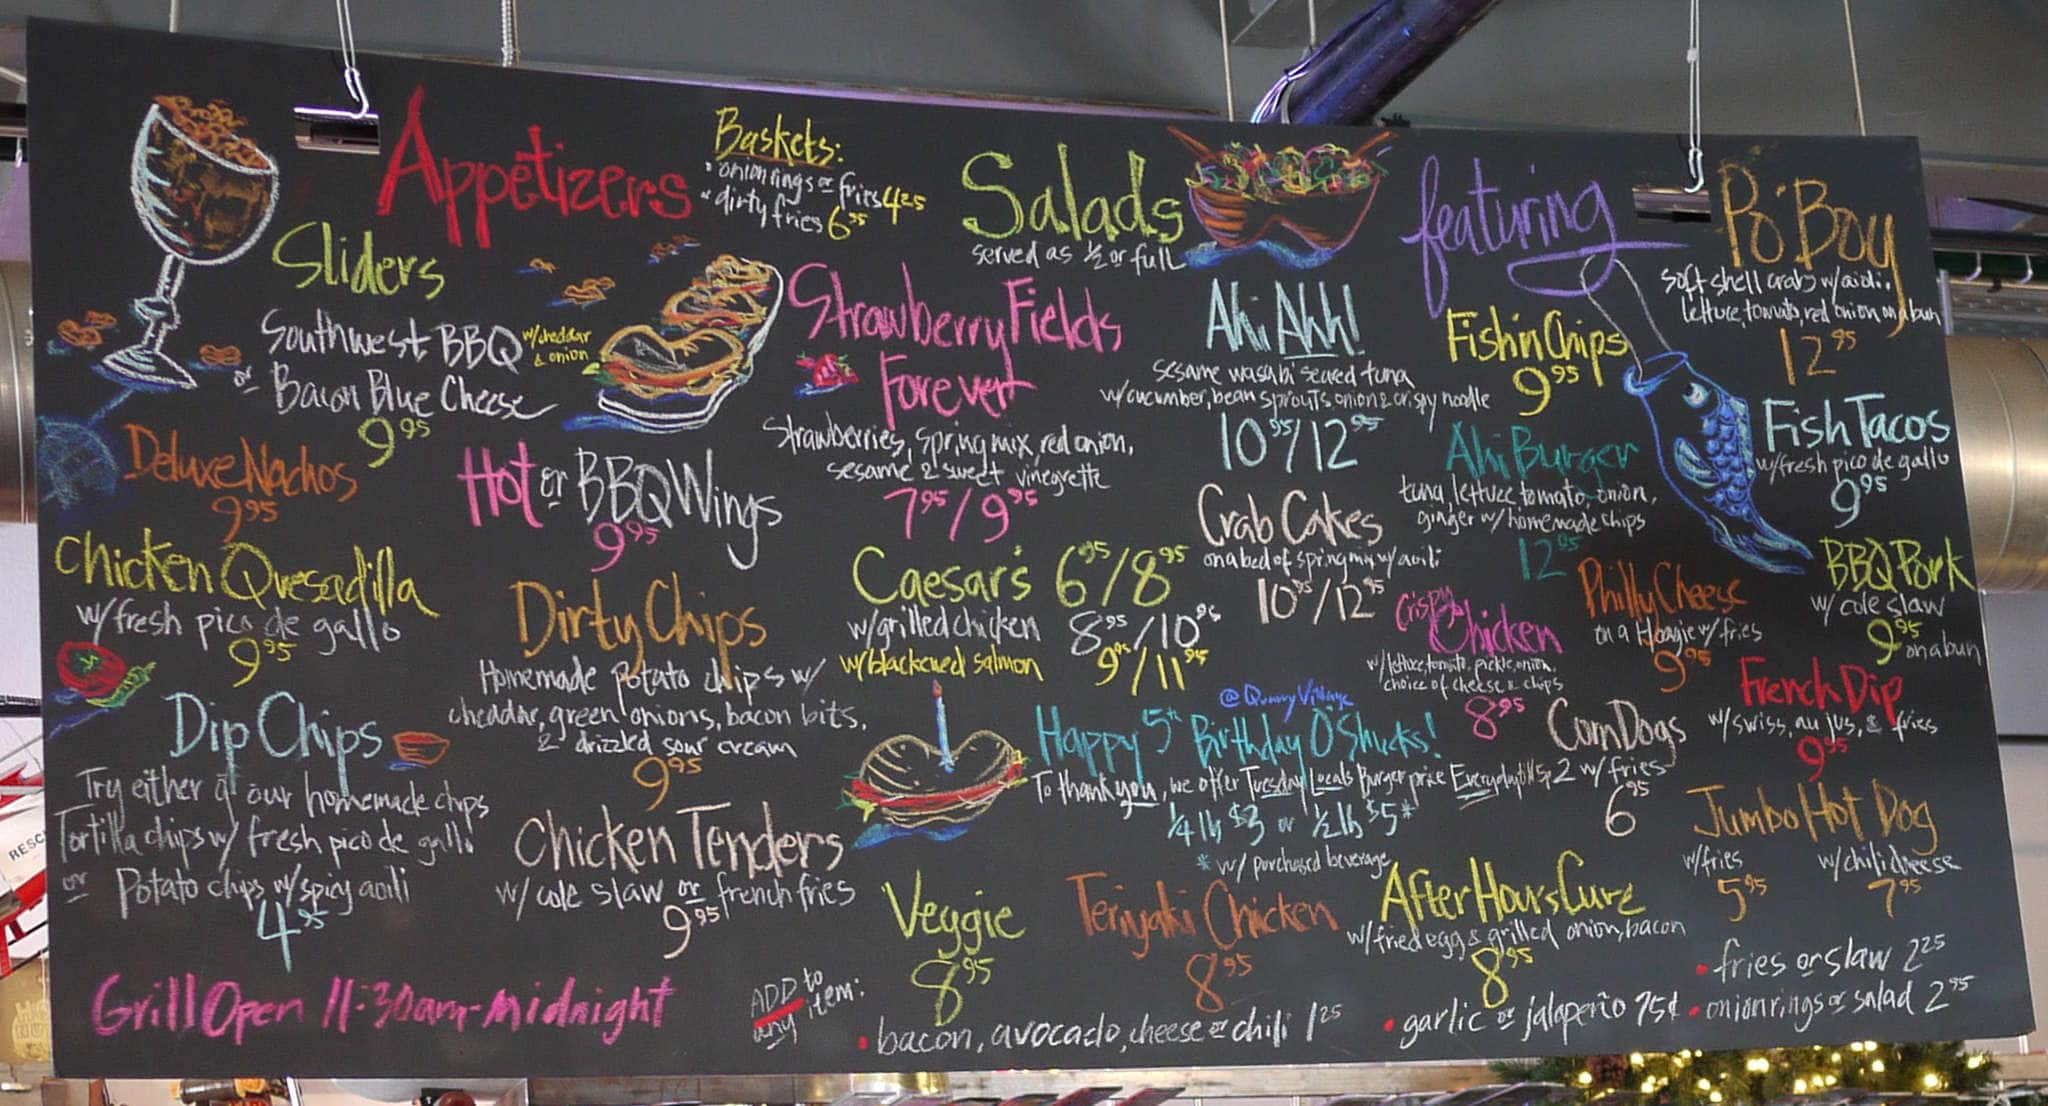 Appetizers
Baskets:
• onion rings or fries 4.25
• dirty fries 6.95
Sliders
Southwest BBQ w/cheddar & onion
or Bacon Blue Cheese
9.95
Deluxe Nachos
9.95
Hot or BBQ Wings
9.95
Chicken Quesadilla
w/fresh pico de gallo
9.95
Dirty Chips
Homemade potato chips w/
cheddar, green onions, bacon bits,
& drizzled sour cream
9.95
Dip Chips
Try either of our homemade chips
Tortilla chips w/ fresh pico de gallo
or Potato chips w/spicy aoili
4.95
Chicken Tenders
w/cole slaw or french fries
9.95
Grill Open 11:30am-midnight
Salads
served as 1/2 or full
Strawberry Fields
Forever!
Strawberries, spring mix, red onion,
sesame & sweet vinegrette
7.95/9.95
Ahi Ahh!
sesame wasabi seared tuna
w/cucumber, bean sprouts onion & crispy noodle
10.95/12.95
Caesar's 6.95/8.95
w/grilled chicken 8.95/10.95
w/blackened salmon 9.95/11.95
Crab Cakes
on a bed of spring mix w/aoili
10.95/12.95
@Quarry Village
Happy 5th Birthday O'Shucks!
To thank you, we offer Tuesday Locals Burger price Everyday
1/4 lb $3 or 1/2 lb $5*
* w/ purchased beverage
featuring
Po'Boy
soft shell crab w/aioli,
lettuce, tomato, red onion on a bun
12.95
Fish'n Chips
9.95
Fish Tacos
w/fresh pico de gallo
9.95
Ahi Burger
tuna, lettuce, tomato, onion,
ginger w/homemade chips
12.95
Philly Cheese
on a Hoagie w/ fries
9.95
BBQ Pork
w/ cole slaw
9.95 on a bun
Crispy Chicken
w/lettuce, tomato, pickle, onion,
choice of cheese & chips
8.95
French Dip
w/swiss, au jus, & fries
9.95
Corn Dogs
2 w/ fries
6.95
Jumbo Hot Dog
w/fries w/chili cheese
5.95 7.95
Veggie
8.95
Teriyaki Chicken
8.95
After Hours Cure
w/fried egg & grilled onion, bacon
8.95
ADD to
any item:
• bacon, avocado, cheese or chili 1.25
• garlic or jalapeño 75¢
• fries or slaw 2.25
• onion rings or salad 2.95
RESC